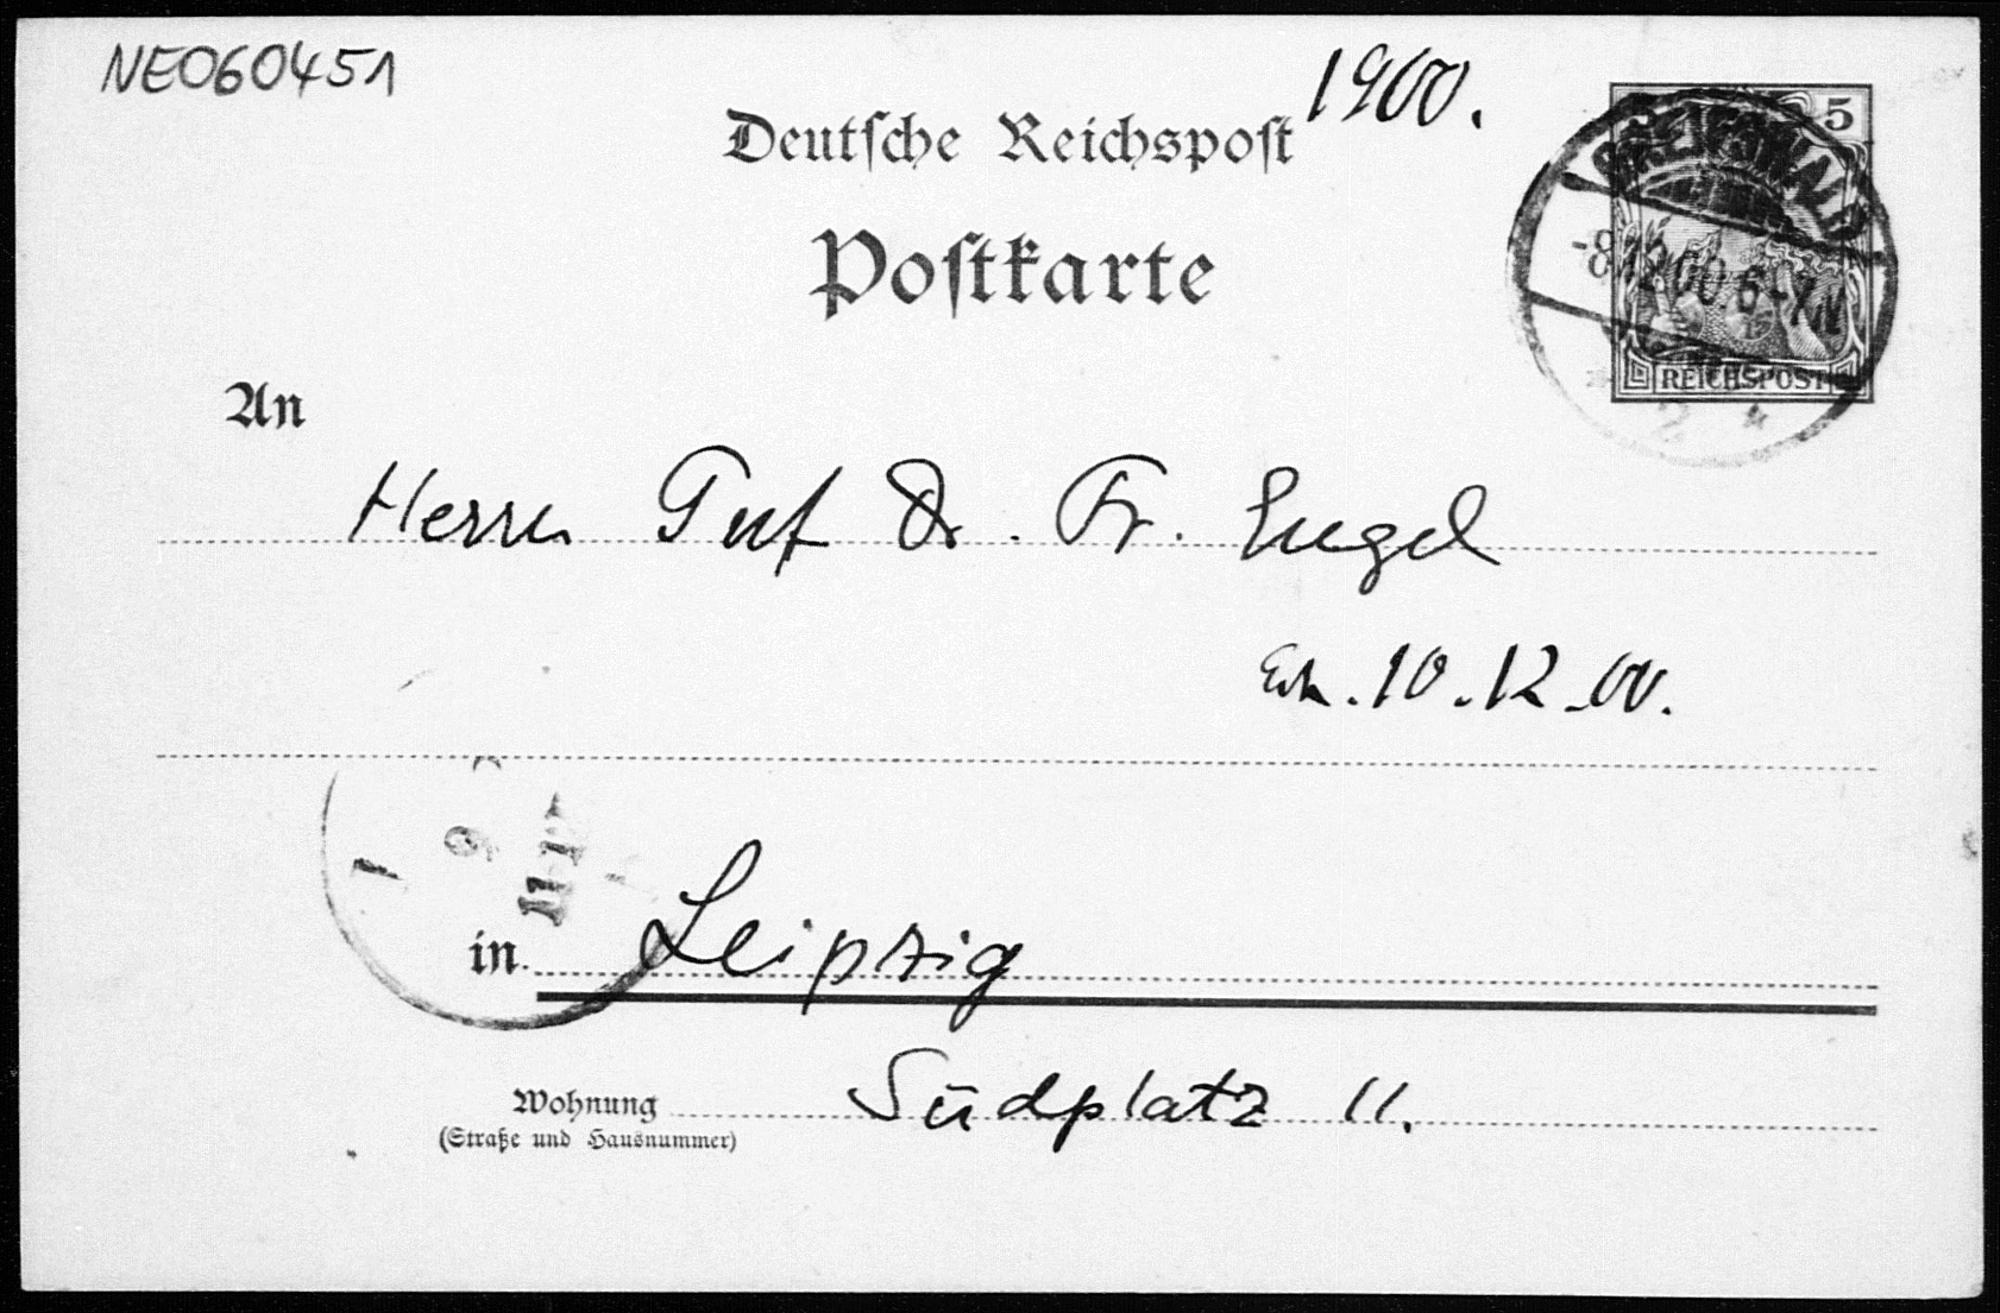 NE060451
1900.
Deutsche Reichspost
5
GREIFSWALD
-8.12.00.6-7N
REICHSPOST
2 *
Postkarte
An
Herrn Prof Dr. Fr. Engel
Erh. 10.12.00.
1
9
11-12
in Leipzig
Wohnung Südplatz 11.
(Straße und Hausnummer)